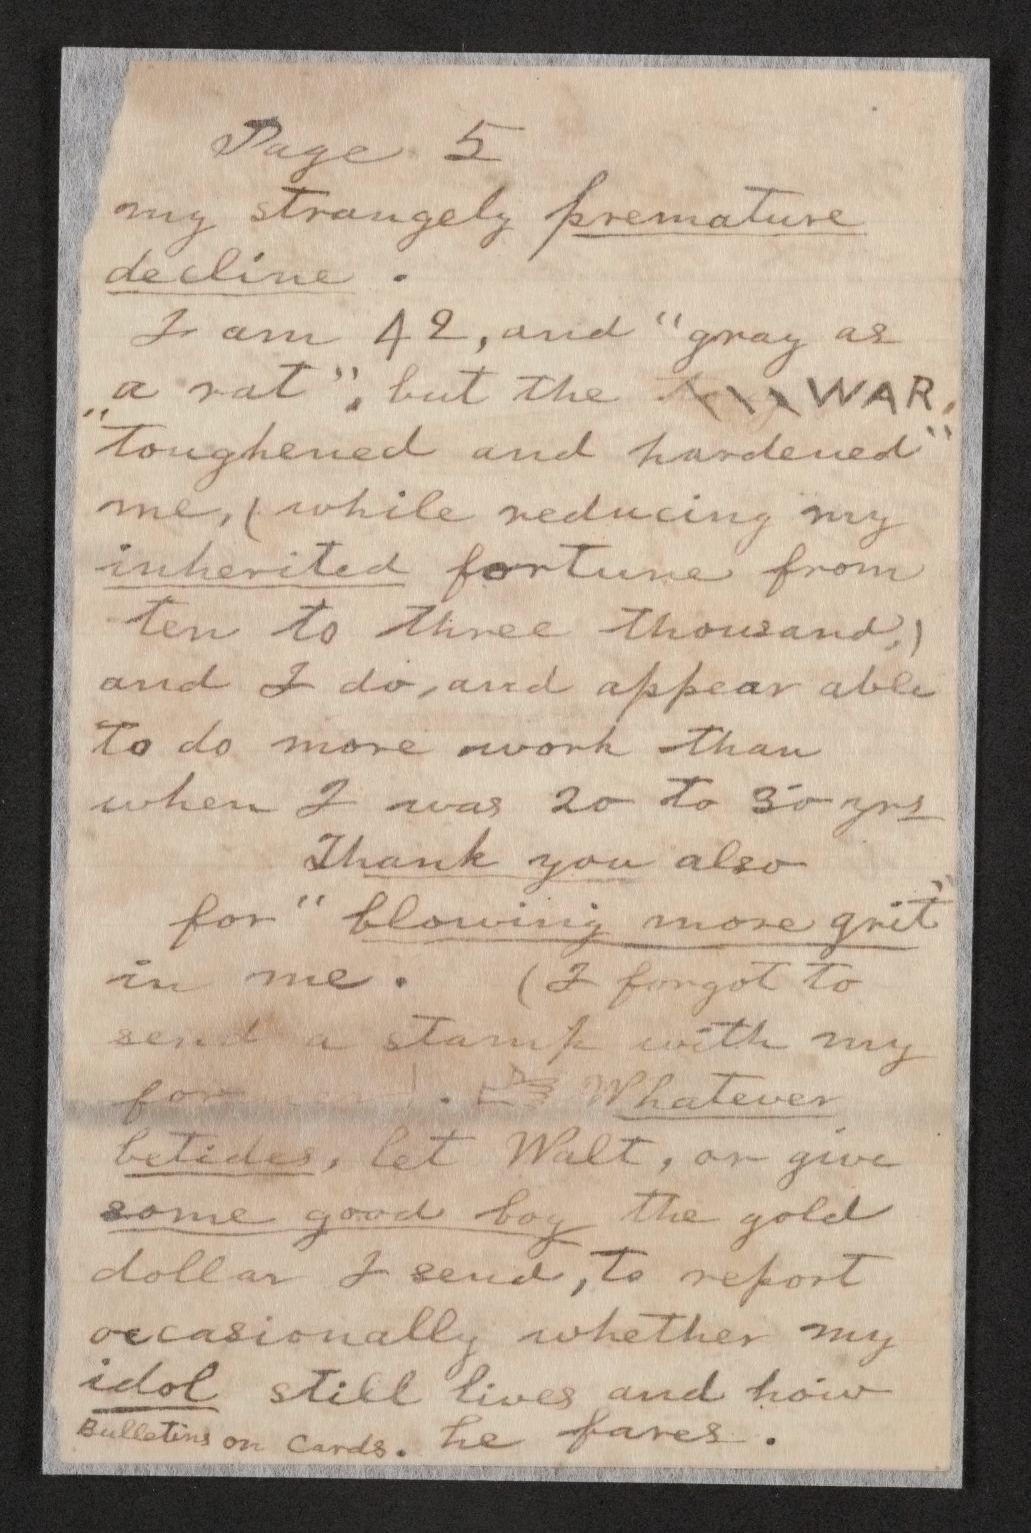 Page 5
my strangely premature
decline.
I am 42, and "gray as
a rat", but the WAR,
"toughened and hardened"
me, (while reducing my
inherited fortune from
ten to three thousand,)
and I do, and appear able
to do more work than
when I was 20 to 30 yrs
Thank you also
for "blowing more grit"
in me. (I forgot to
send a stamp with my
for . Whatever
betides, let Walt, or give
some good boy the gold
dollar I send, to report
occasionally whether my
idol still lives and how
Bulletins on Cards. he fares.